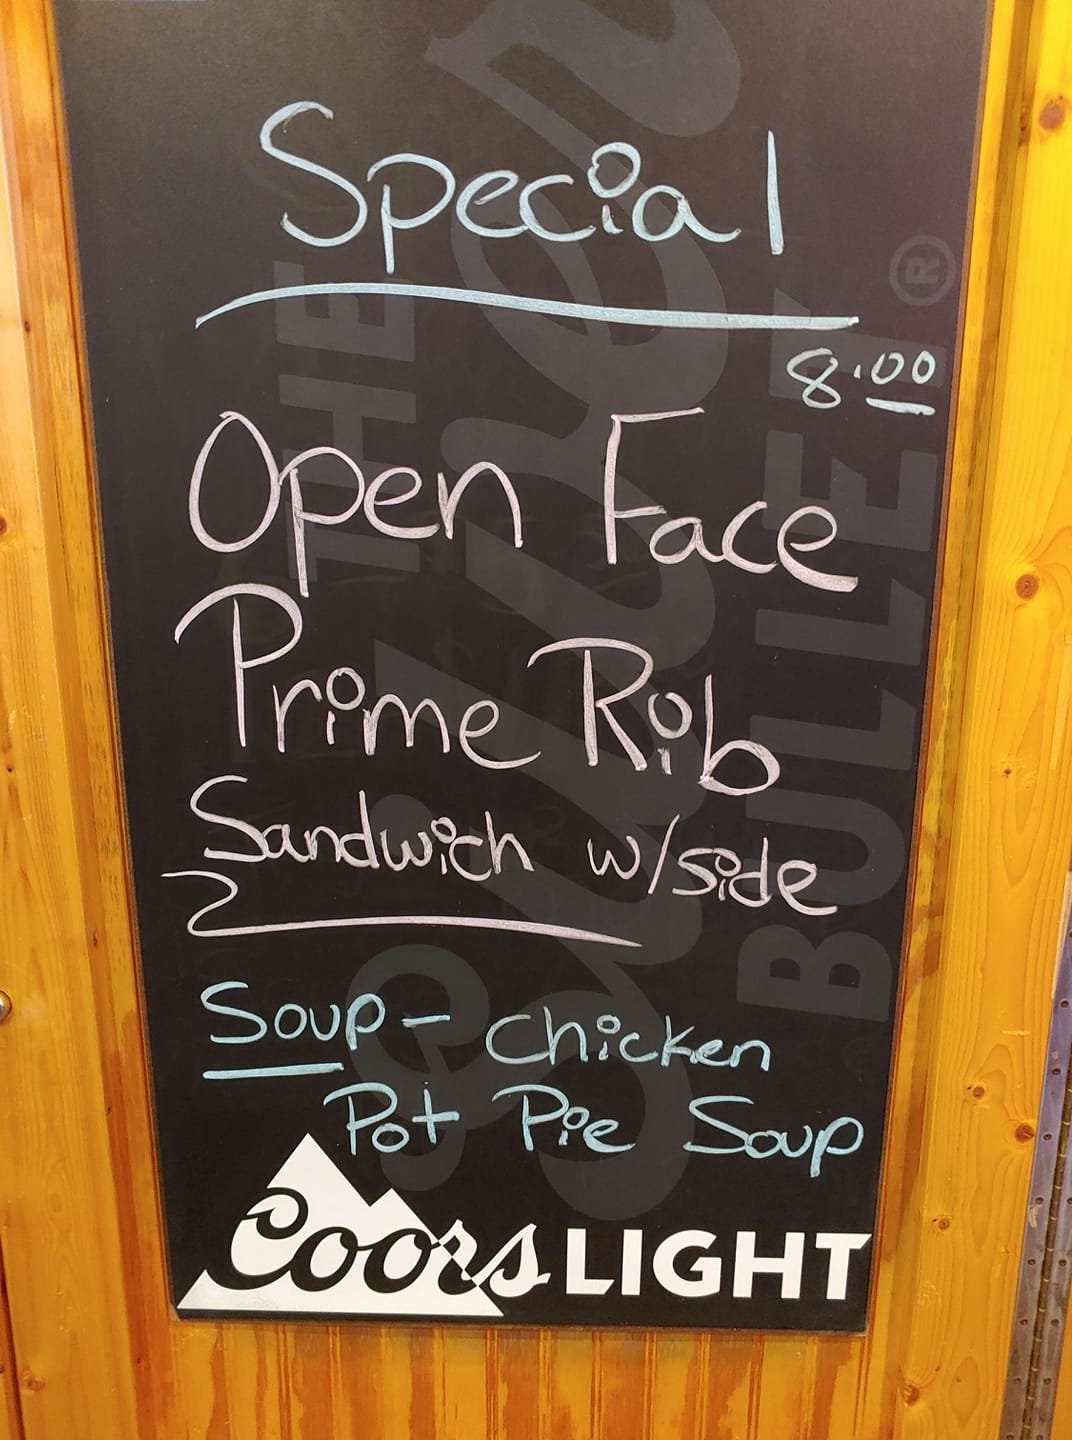 Special
8.00
Open Face
Prime Rib
Sandwich w/side
Soup - Chicken
Pot Pie Soup
Coors LIGHT
THE
Silver
BULLET®